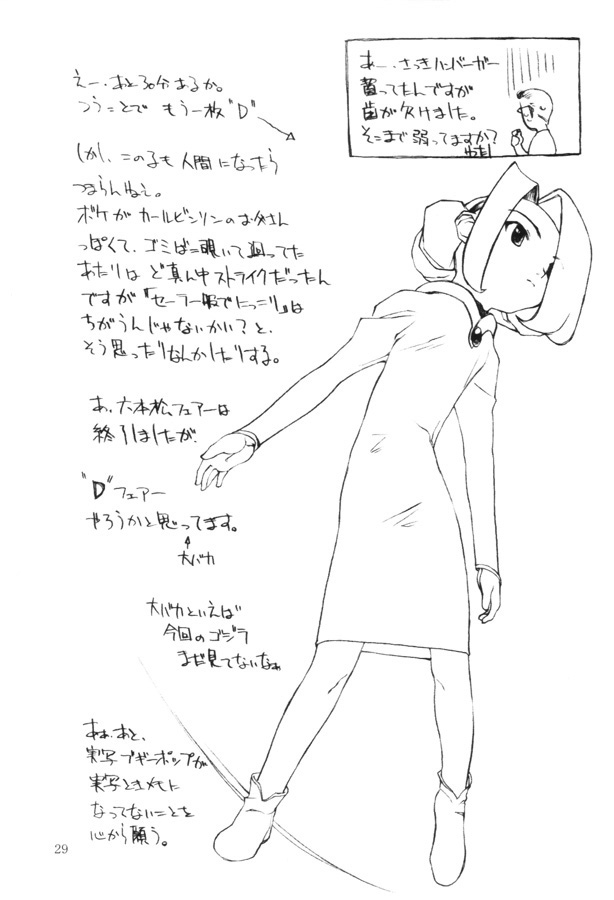 えー、あと30分あるか。
つうことで もう一枚"D"
しかし、この子も人間になったら
つまらんねぇ。
ボケがカールビンソンのお父さん
っぽくて、ゴミばこ覗いて回ってた
あたりはど真ん中ストライクだったん
ですが「セーラー服でにっこり」は
ちがうんじゃないかい?と、
そう思ったりなんかしたりする。
あ、六本松フェアーは
終了しましたが
"D"フェアー
やろうかと思ってます。
大バカ
大バカといえば
今回のゴジラ
まだ見てないなぁ
あぁ、あと、
実写ブギーポップが
実写ときメモに
なってないことを
心から願う。
あー、さっきハンバーガー
買ってたんですが
歯が欠けました。
そこまで弱ってますか?
わたし
29